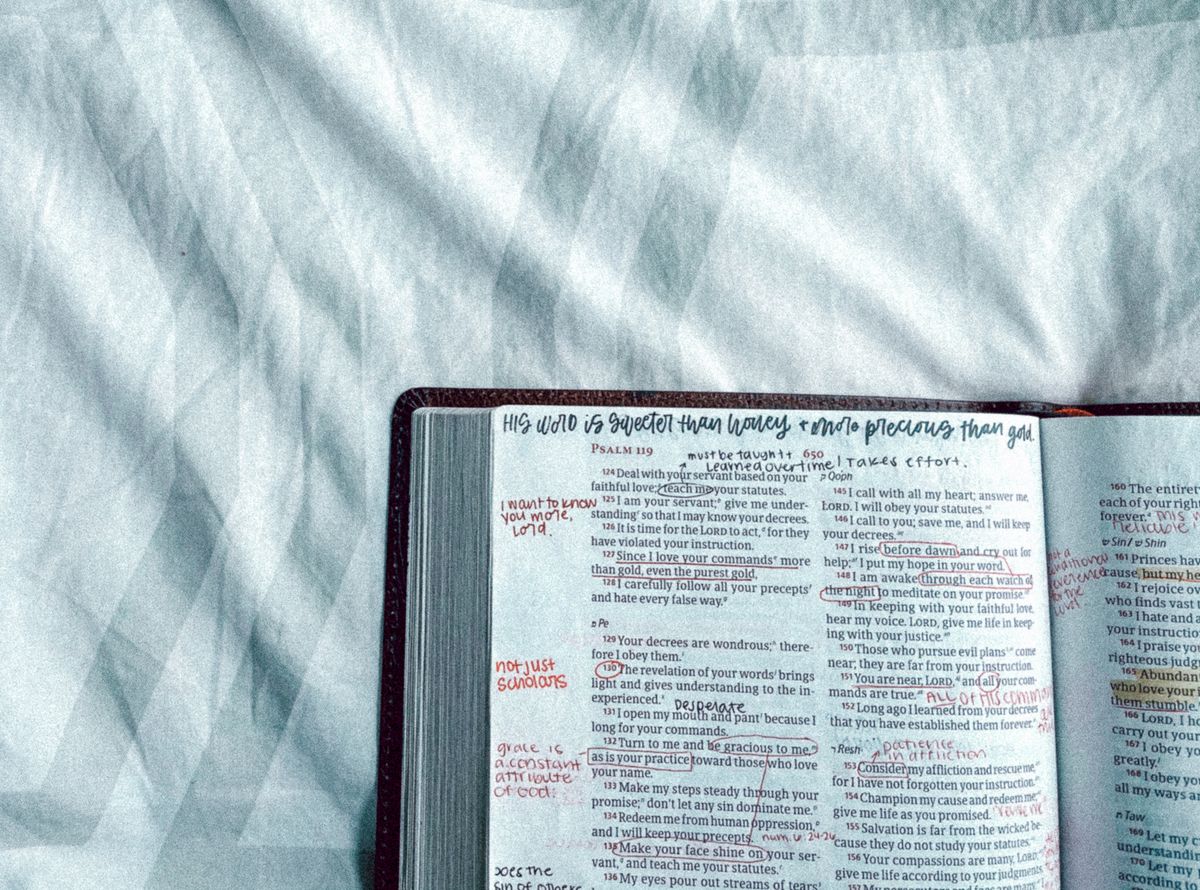 HIS WORD is sweeter than honey + more precious than gold.
PSALM 119
650
must be taught +
learned overtime! Takes effort.
124 Deal with your servant based on your
faithful love; teach me your statutes.
125 I am your servant; give me under-
standing so that I may know your decrees.
126 It is time for the LORD to act, for they
have violated your instruction.
127 Since I love your commands more
than gold, even the purest gold,
128 I carefully follow all your precepts
and hate every false way.
I want to know
you more,
Lord.
פ Pe
129 Your decrees are wondrous; there-
fore I obey them.
130 The revelation of your words brings
light and gives understanding to the in-
experienced.
not just
scholars
Desperate
131 I open my mouth and pant because I
long for your commands.
132 Turn to me and be gracious to me,
as is your practice toward those who love
your name.
grace is
a constant
attribute
of God.
133 Make my steps steady through your
promise; don't let any sin dominate me.
134 Redeem me from human oppression,
and I will keep your precepts.
num. 6:24-26
135 Make your face shine on your ser-
vant, and teach me your statutes.
136 My eyes pour out streams of tears
Does the
sin of others
ק Qoph
145 I call with all my heart; answer me,
LORD. I will obey your statutes.
146 I call to you; save me, and I will keep
your decrees.
147 I rise before dawn and cry out for
help; I put my hope in your word.
148 I am awake through each watch of
the night to meditate on your promise.
149 In keeping with your faithful love,
hear my voice. LORD, give me life in keep-
ing with your justice.
150 Those who pursue evil plans come
near; they are far from your instruction.
151 You are near, LORD, and all your com-
mands are true.
ALL OF HIS
152 Long ago I learned from your decrees
that you have established them forever.
ר Resh
patience
in affliction
153 Consider my affliction and rescue me,
for I have not forgotten your instruction.
154 Champion my cause and redeem me;
give me life as you promised.
155 Salvation is far from the wicked be-
cause they do not study your statutes.
156 Your compassions are many, LORD;
give me life according to your judgments.
157
160 The entirety
each of your right
forever.
This is
reliable
ש Sin / שׁ Shin
161 Princes hav
cause, but my he
162 I rejoice ov
who finds vast
163 I hate and a
your instructio
164 I praise you
righteous judg
165 Abundan
who love your
them stumble.
166 LORD, I h
carry out your
167 I obey yo
greatly.
168 I obey you
all my ways ar
ת Taw
169 Let my c
understanding
170 Let my
according